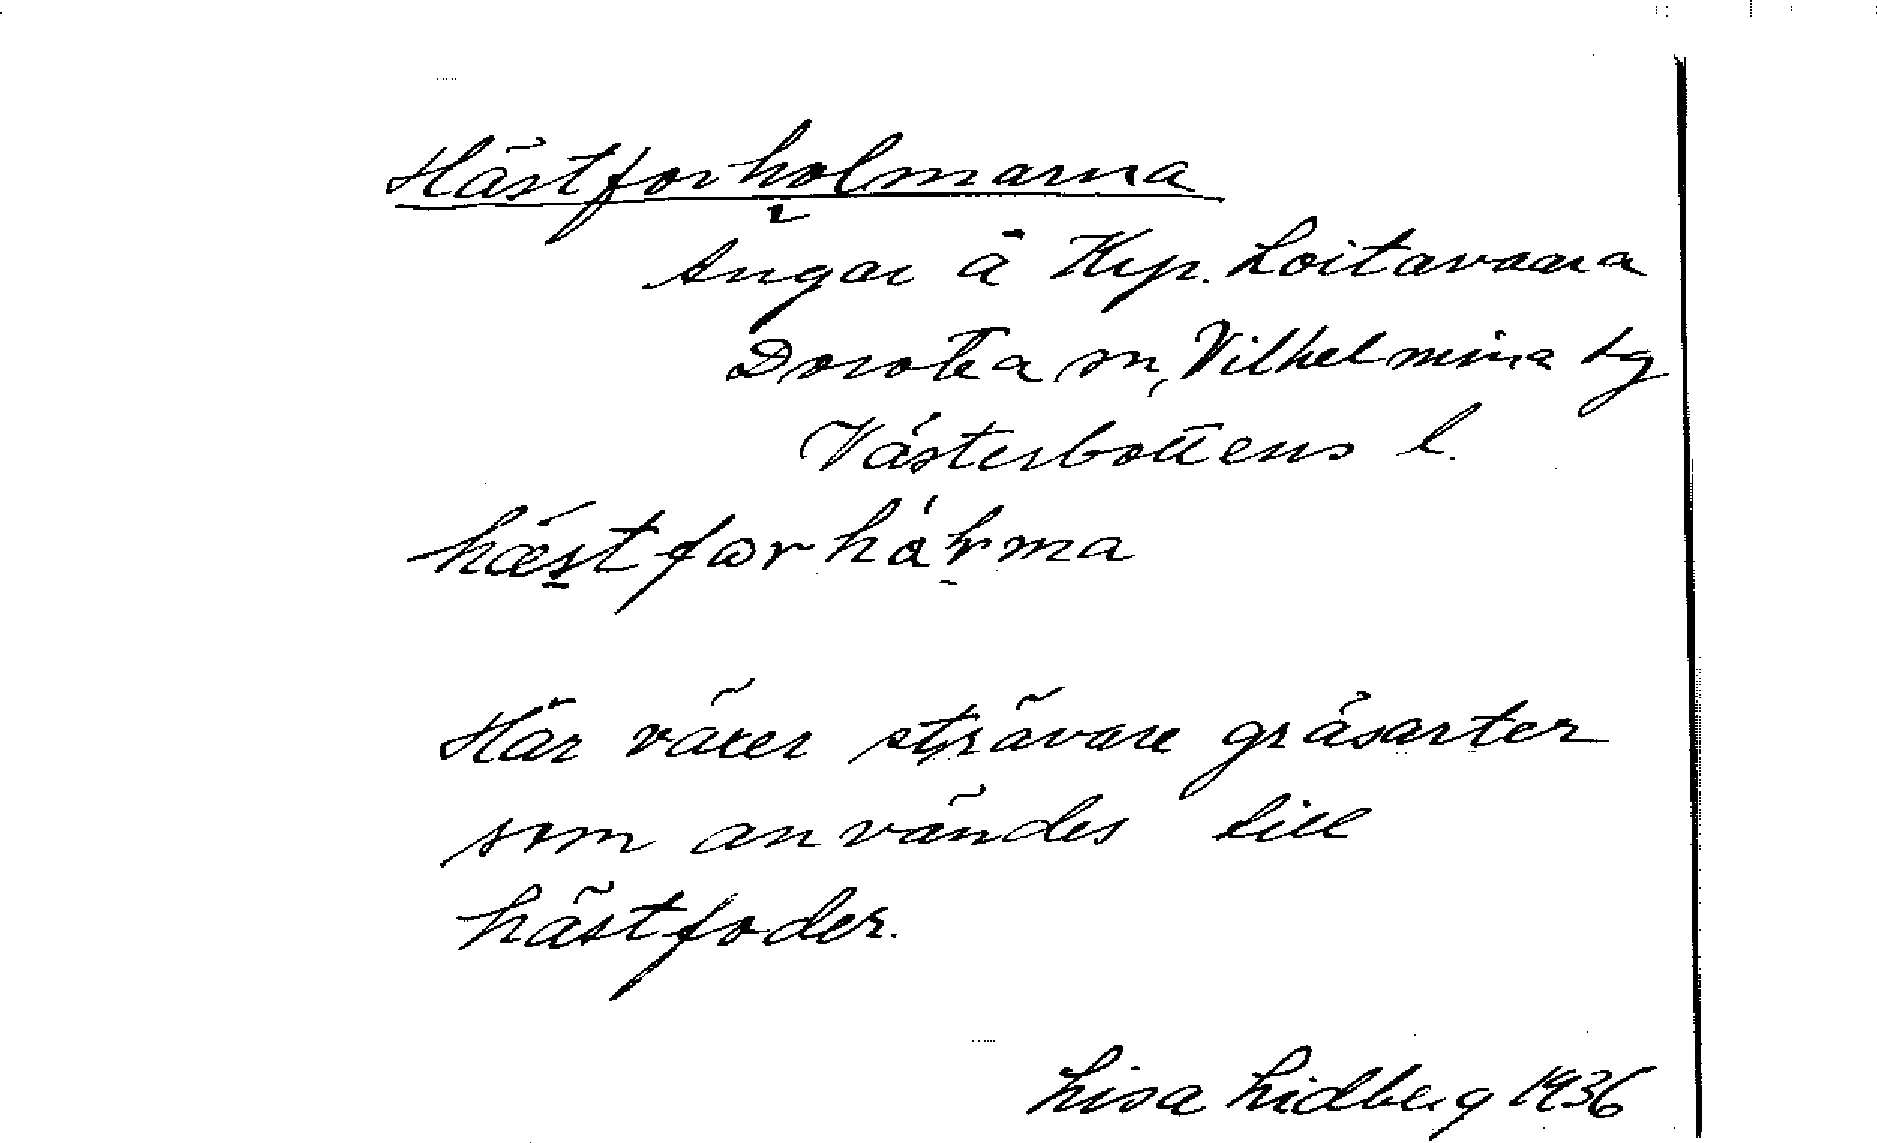 Hästforholmarna
Ängar å Krp. Loitavaara
Dorotea sn, Vilhelmina tg
Västerbottens l.
hæstforhårma
Här växer strävare gräsarter
som användes till
hästfoder.
Lisa Lidberg 1936